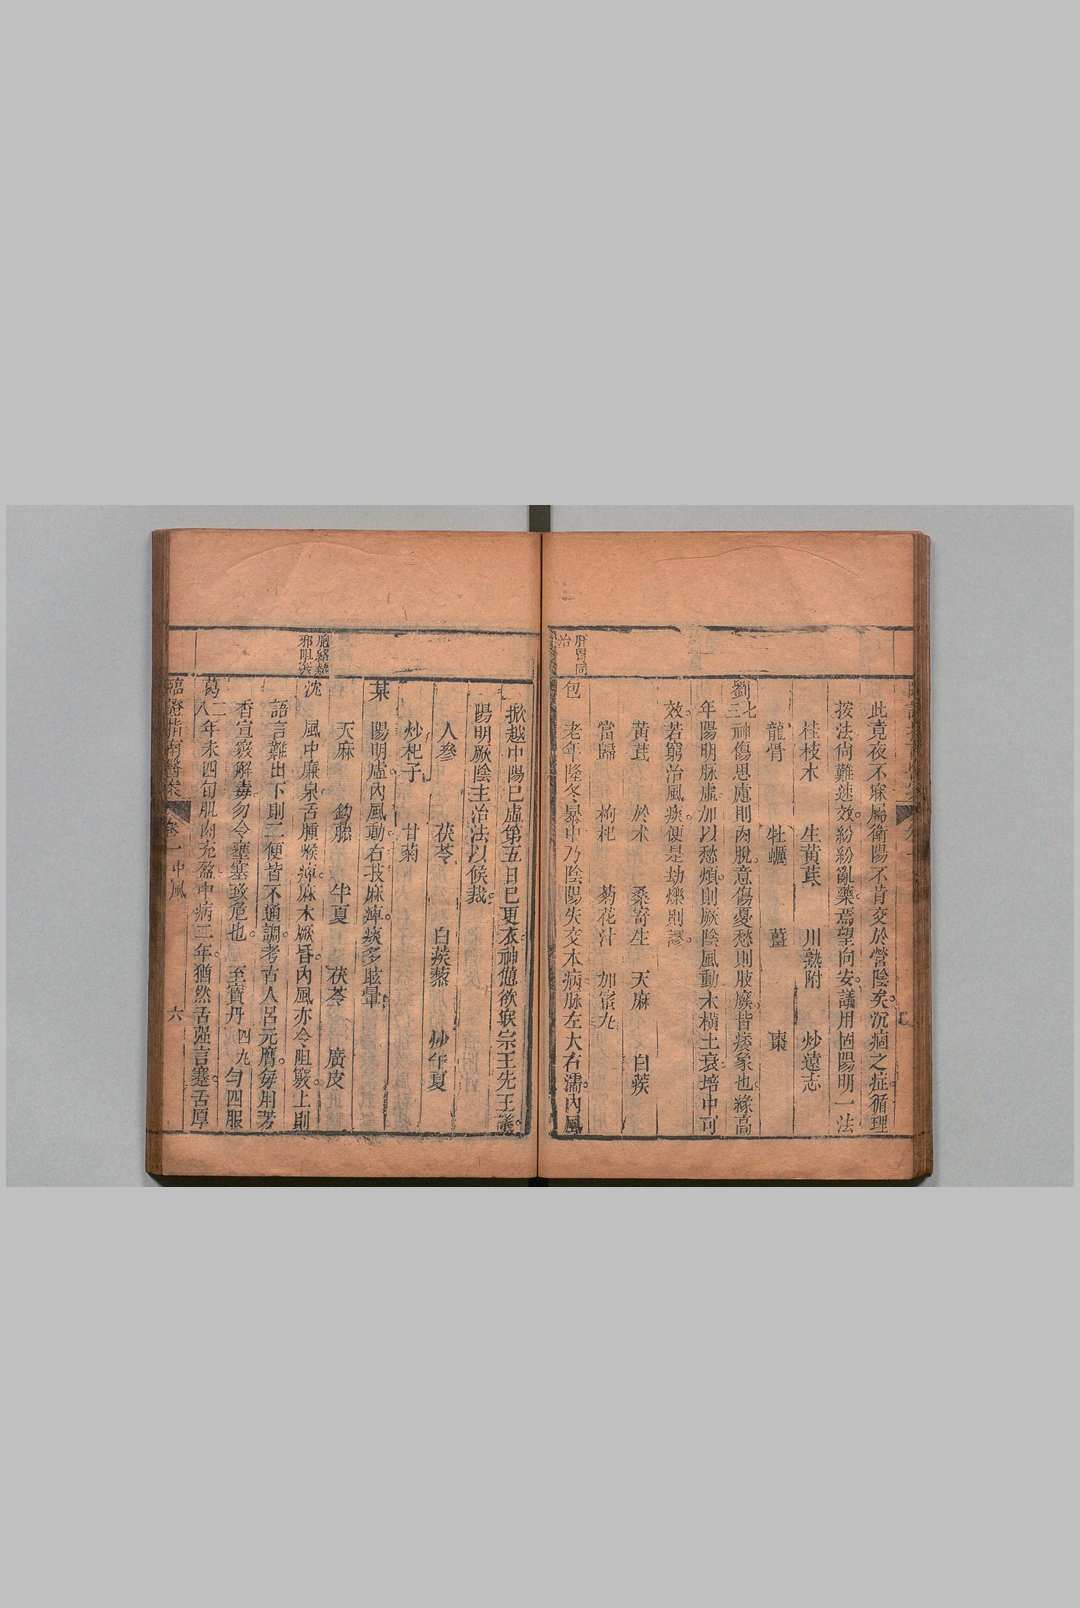 此竟夜不寐屬衛陽不肯交於營陰矣沉痼之症循理
按法尚難速效紛紛亂藥焉望向安議用固陽明一法
桂枝木　生黃芪　川熟附　炒遠志
龍骨　牡蠣　薑　棗
劉七三神傷思慮則肉脫意傷憂愁則肢廢皆痿象也緣高
年陽明脉虛加以愁煩則厥陰風動木橫土衰培中可
效若窮治風痰便是劫爍則謬
黃芪　於朮　桑寄生　天麻　白蒺
當歸　枸杞　菊花汁　加蜜丸
肝腎同
治
包
老年隆冬暴中乃陰陽失交本病脉左大右濡內風
掀越中陽已虛第五日已更衣神憊欲寐宗王先王議
陽明厥陰主治法以候裁
人參　茯苓　白蒺藜　炒半夏
炒杞子　甘菊
某
陽明虛內風動右肢麻痺痰多眩暈
天麻　鈎藤　半夏　茯苓　廣皮
胞絡熱
邪阻竅
沈
風中廉泉舌腫喉痺麻木厥昏內風亦令阻竅上則
語言難出下則二便皆不通調考古人呂元膺每用芳
香宣竅解毒勿令壅塞致危也　至寶丹　四丸勻四服
葛二八年未四旬肌肉充盈中病二年猶然舌强言蹇舌厚
臨證指南醫案　卷一　中風　六